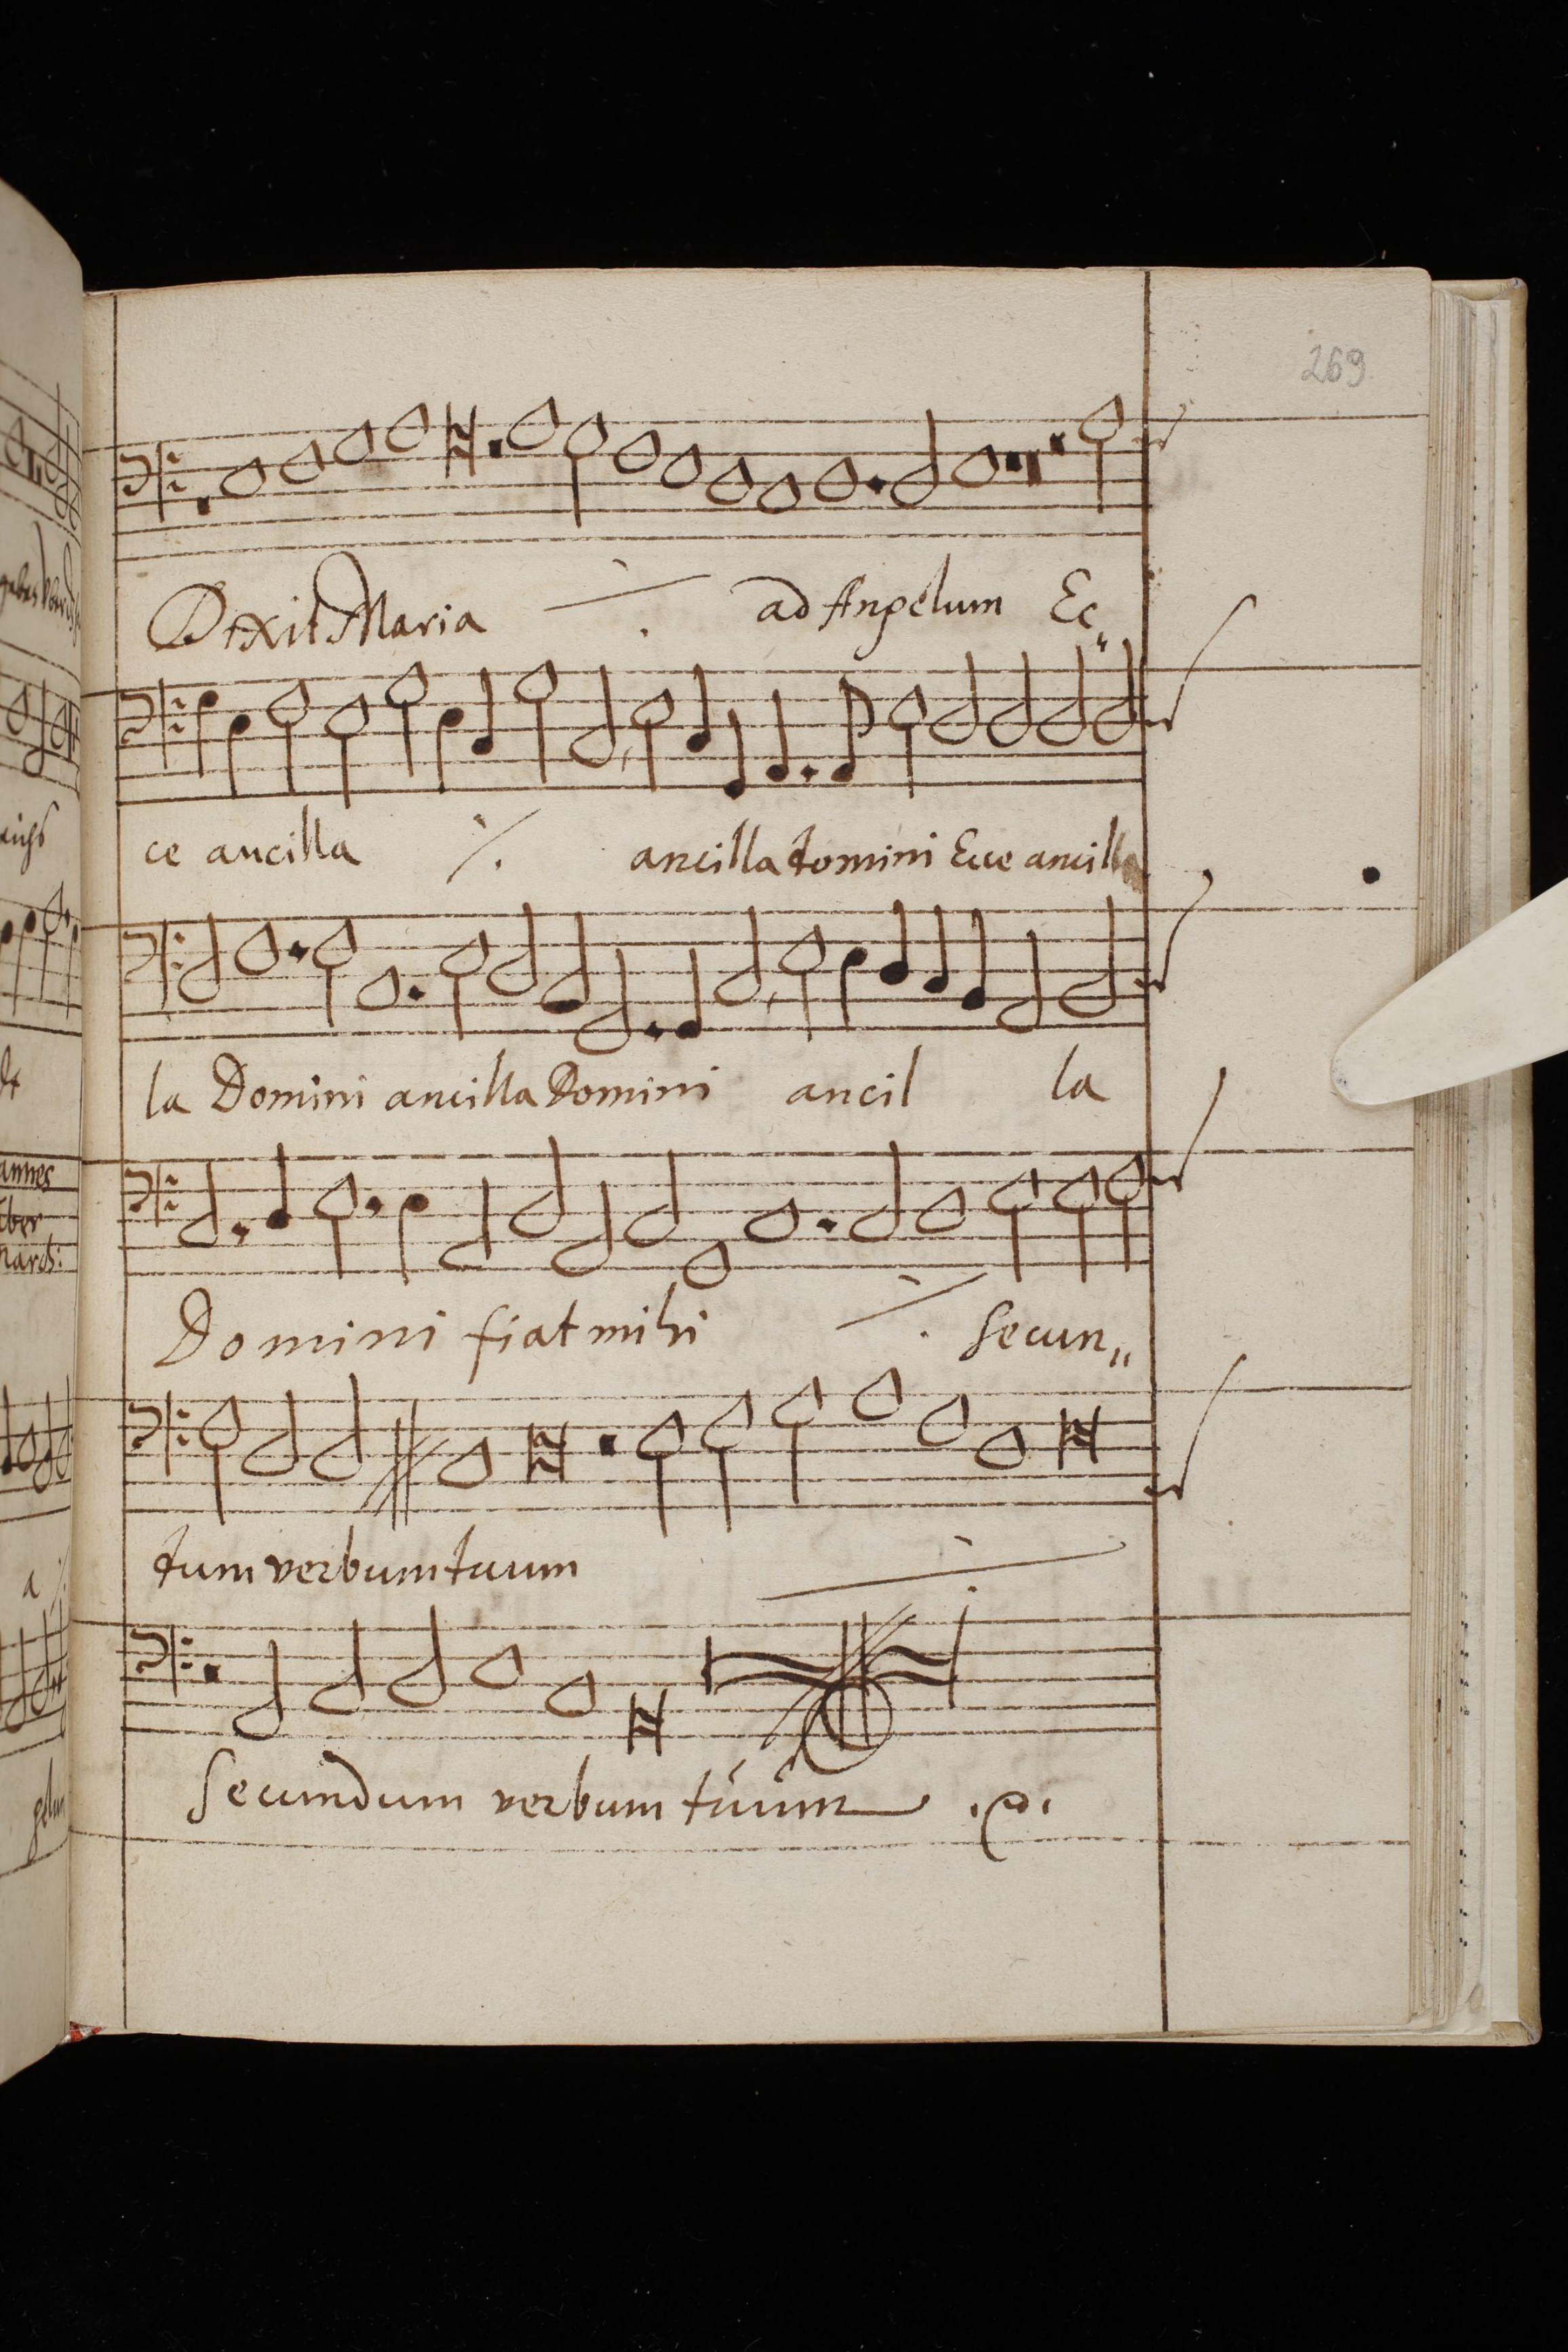 269
Dixit Maria ·/. ad Angelum Ec„
ce ancilla ·/. ancilla domini Ecce ancilla
la Domini ancilla Domini ancil la
Domini fiat mihi ·/. Secun„
tum verbum tuum ·/.
Secundum verbum tuum